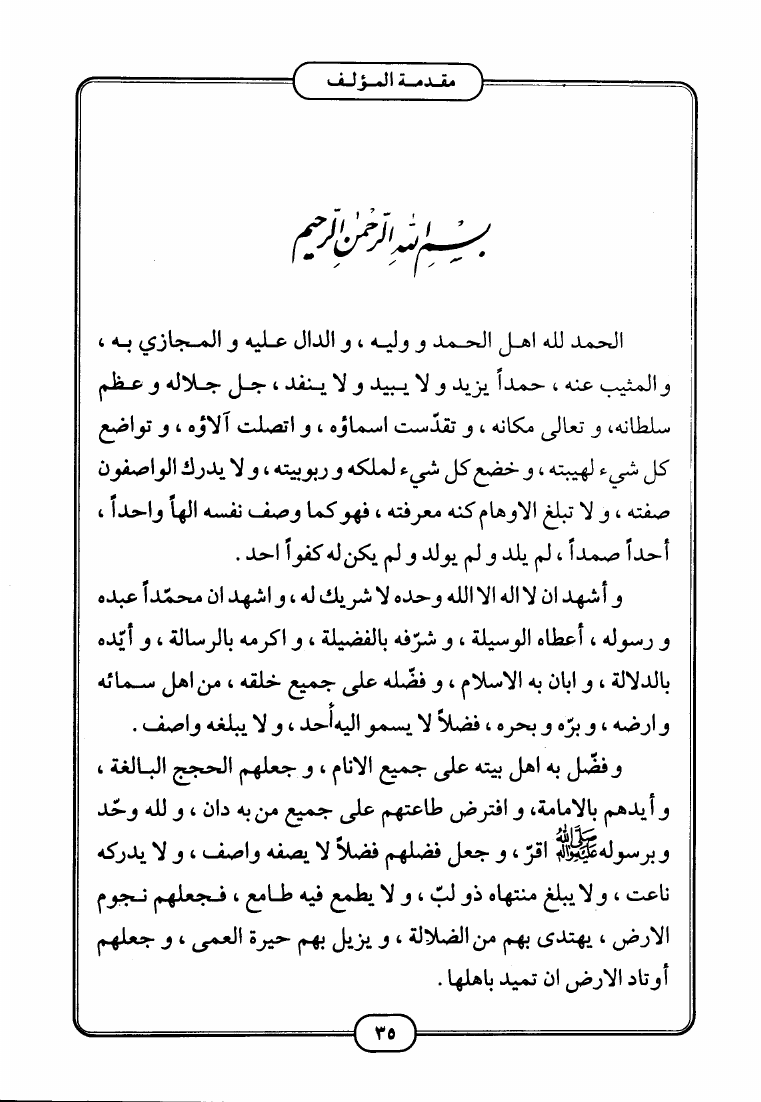 مقدمة المؤلف
بسم الله الرحمن الرحيم
الحمد لله اهل الحمد و وليه ، و الدال عليه و المجازي به ،
و المثيب عنه ، حمداً يزيد و لا يبيد و لا ينفد ، جل جلاله و عظم
سلطانه، و تعالى مكانه ، و تقدّست اسماؤه ، و اتصلت آلاؤه ، و تواضع
كل شيء لهيبته ، و خضع كل شيء لملكه و ربوبيته ، و لا يدرك الواصفون
صفته ، و لا تبلغ الاوهام كنه معرفته ، فهو كما وصف نفسه الهاً واحداً ،
أحداً صمداً ، لم يلد و لم يولد و لم يكن له كفواً احد .
و أشهد ان لا اله الا الله وحده لا شريك له ، و اشهد ان محمّداً عبده
و رسوله ، أعطاه الوسيلة ، و شرّفه بالفضيلة ، و اكرمه بالرسالة ، و أيّده
بالدلالة ، و ابان به الاسلام ، و فضّله على جميع خلقه ، من اهل سمائه
و ارضه ، و برّه و بحره ، فضلاً لا يسمو اليه أحد ، و لا يبلغه واصف .
و فضّل به اهل بيته على جميع الانام ، و جعلهم الحجج البالغة ،
و أيدهم بالامامة، و افترض طاعتهم على جميع من به دان ، و لله وحّد
و برسوله ﷺ اقرّ ، و جعل فضلهم فضلاً لا يصفه واصف ، و لا يدركه
ناعت ، و لا يبلغ منتهاه ذو لبّ ، و لا يطمع فيه طامع ، فجعلهم نجوم
الارض ، يهتدى بهم من الضلالة ، و يزيل بهم حيرة العمى ، و جعلهم
أوتاد الارض ان تميد باهلها .
٣٥